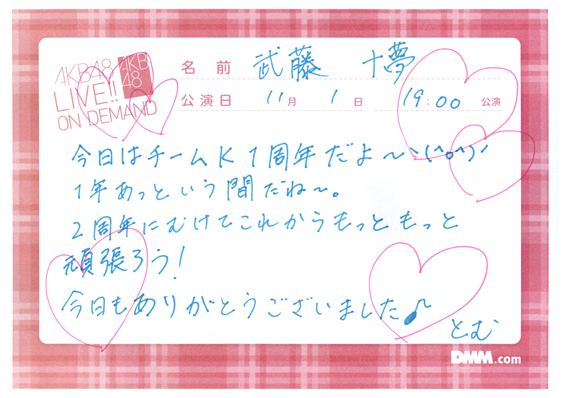 AKB48
LIVE!!
ON DEMAND
AKB
48
名前 武藤 十夢
公演日 11月 1日 19:00 公演
今日はチームK1周年だよ〜ヽ(^o^)ノ
1年あっという間だね〜。
2周年にむけてこれからもっともっと
頑張ろう!
今日もありがとうございました♪
とむ
DMM.com